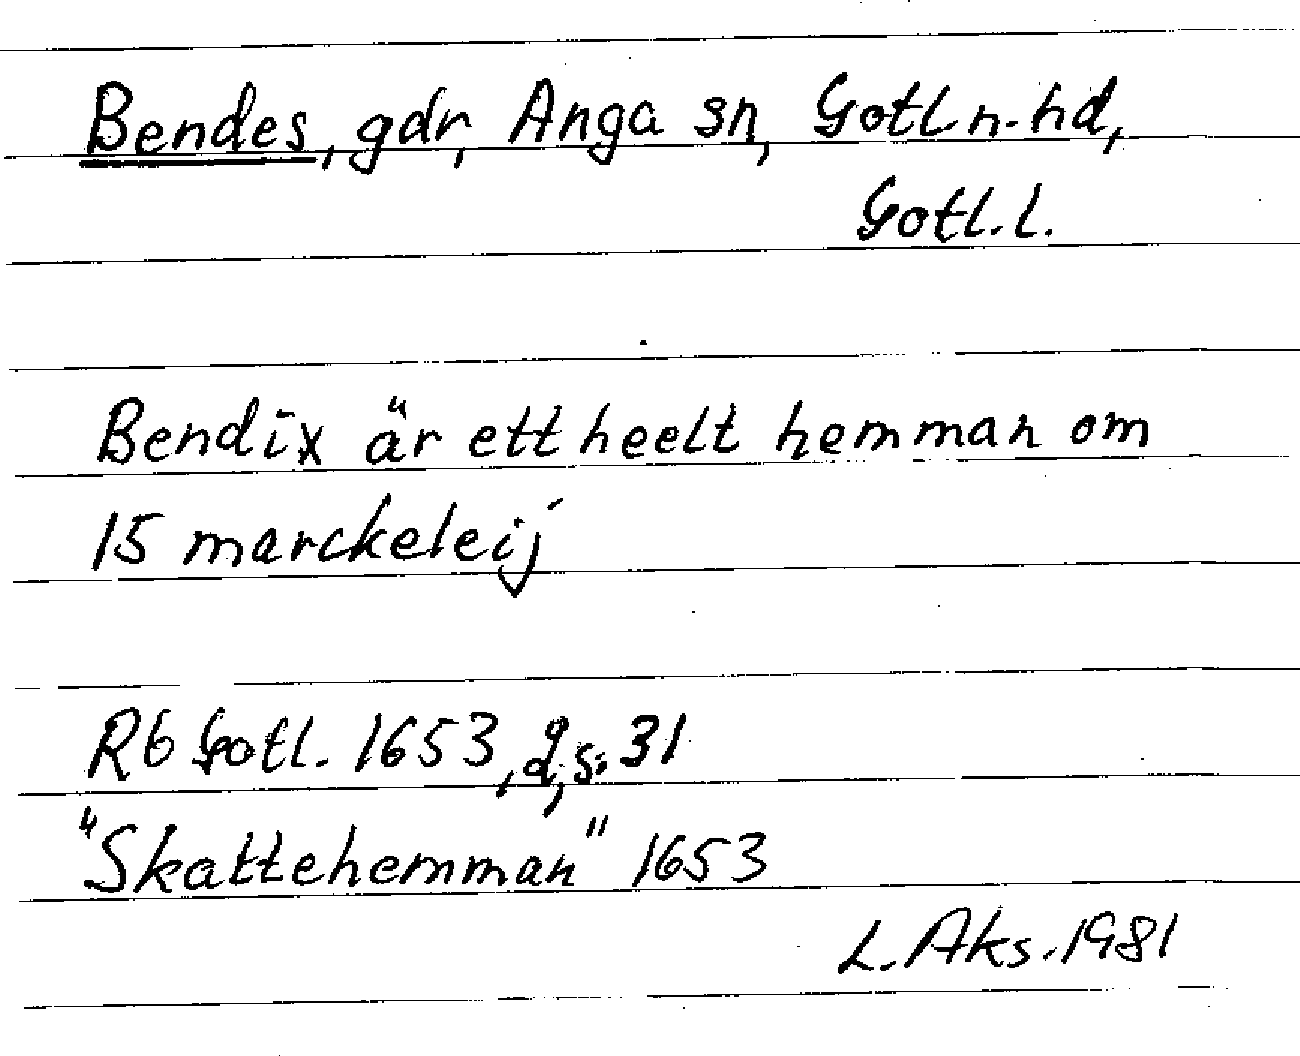 Bendes, gdr, Anga sn, Gotl n. hd,
Gotl. l.
Bendix är ett heelt hemman om
15 marckeleij
Rb Gotl. 1653, 2, s. 31
"Skattehemman" 1653
L. Aks. 1981